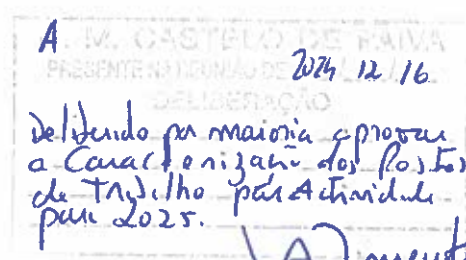 A
A. M. CASTELO DE PAIVA
PRESENTE NA REUNIÃO DE
2024 12 16
DELIBERAÇÃO
Deliberado por maioria aprovar
a Caracterização dos Postos
de Trabalho por Actividade
para 2025.